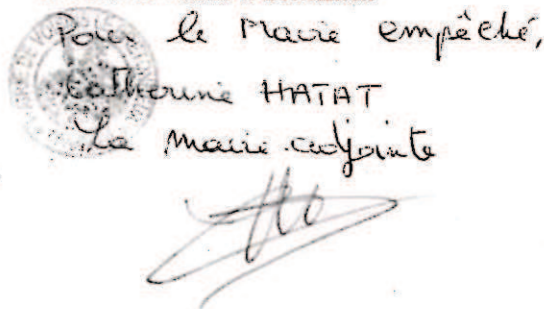 Pour le Maire empêché,
Catherine HATAT
La maire adjointe